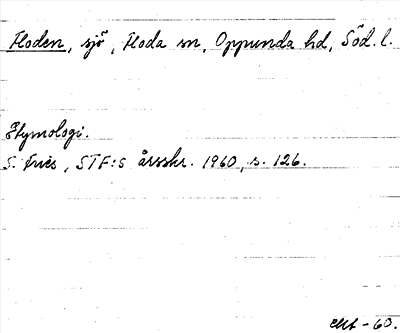 Floden, sjö, Floda sn, Oppunda hd, Söd. l.
Etymologi.
S. Fries, STF:s årsskr. 1960, s. 126.
-60.